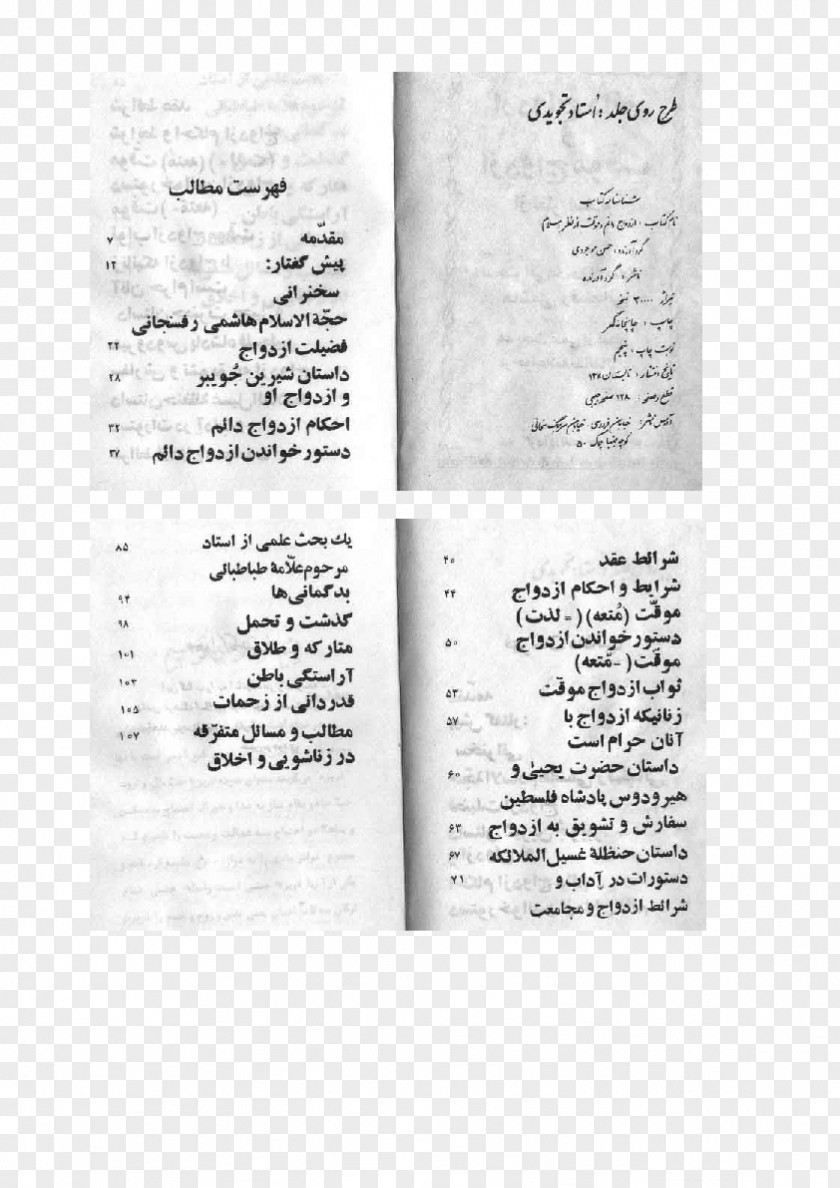 طرح روی جلد: اُستاد تجویدی
شناسنامه کتاب
نام کتاب: ازدواج دائم و موقت از نظر اسلام
گردآورنده: حسن موجودی
ناشر: گردآورنده
تیراژ ۳۰۰۰۰ نسخه
چاپ: چاپخانه گهر
نوبت چاپ: پنجم
تاریخ انتشار: تابستان ۱۳۷۰
قطع رصفحه: ۱۲۸ صفحه جیبی
آدرس ناشر: خیابان فردوسی - خیابان سرهنگ سخائی
کوچه پلاک ۵۰
فهرست مطالب
مقدّمه ۷
پیش گفتار: ۱۲
سخنرانی
حجّة الاسلام هاشمی رفسنجانی
فضیلت ازدواج ۲۲
داستان شیرین جُویبر ۲۸
و ازدواج او
احکام ازدواج دائم ۳۲
دستور خواندن ازدواج دائم ۳۷
شرائط عقد ۴۰
شرایط و احکام ازدواج ۴۴
موقّت (مُتعه) (= لذت)
دستور خواندن ازدواج ۵۰
موقّت (-مّتعه)
ثواب ازدواج موقّت ۵۳
زنانیکه ازدواج با ۵۷
آنان حرام است
داستان حضرت یحییٰ و ۶۰
هیرودوس پادشاه فلسطین
سفارش و تشویق به ازدواج ۶۳
داستان حنظلهٔ غسیل الملائکه ۶۷
دستورات در آداب و ۷۱
شرائط ازدواج و مجامعت
یك بحث علمی از استاد ۸۵
مرحوم علّامهٔ طباطبائی
بدگمانی‌ها ۹۴
گذشت و تحمل ۹۸
متارکه و طلاق ۱۰۱
آراستگی باطن ۱۰۳
قدردانی از زحمات ۱۰۵
مطالب و مسائل متفرّقه ۱۰۷
در زناشویی و اخلاق